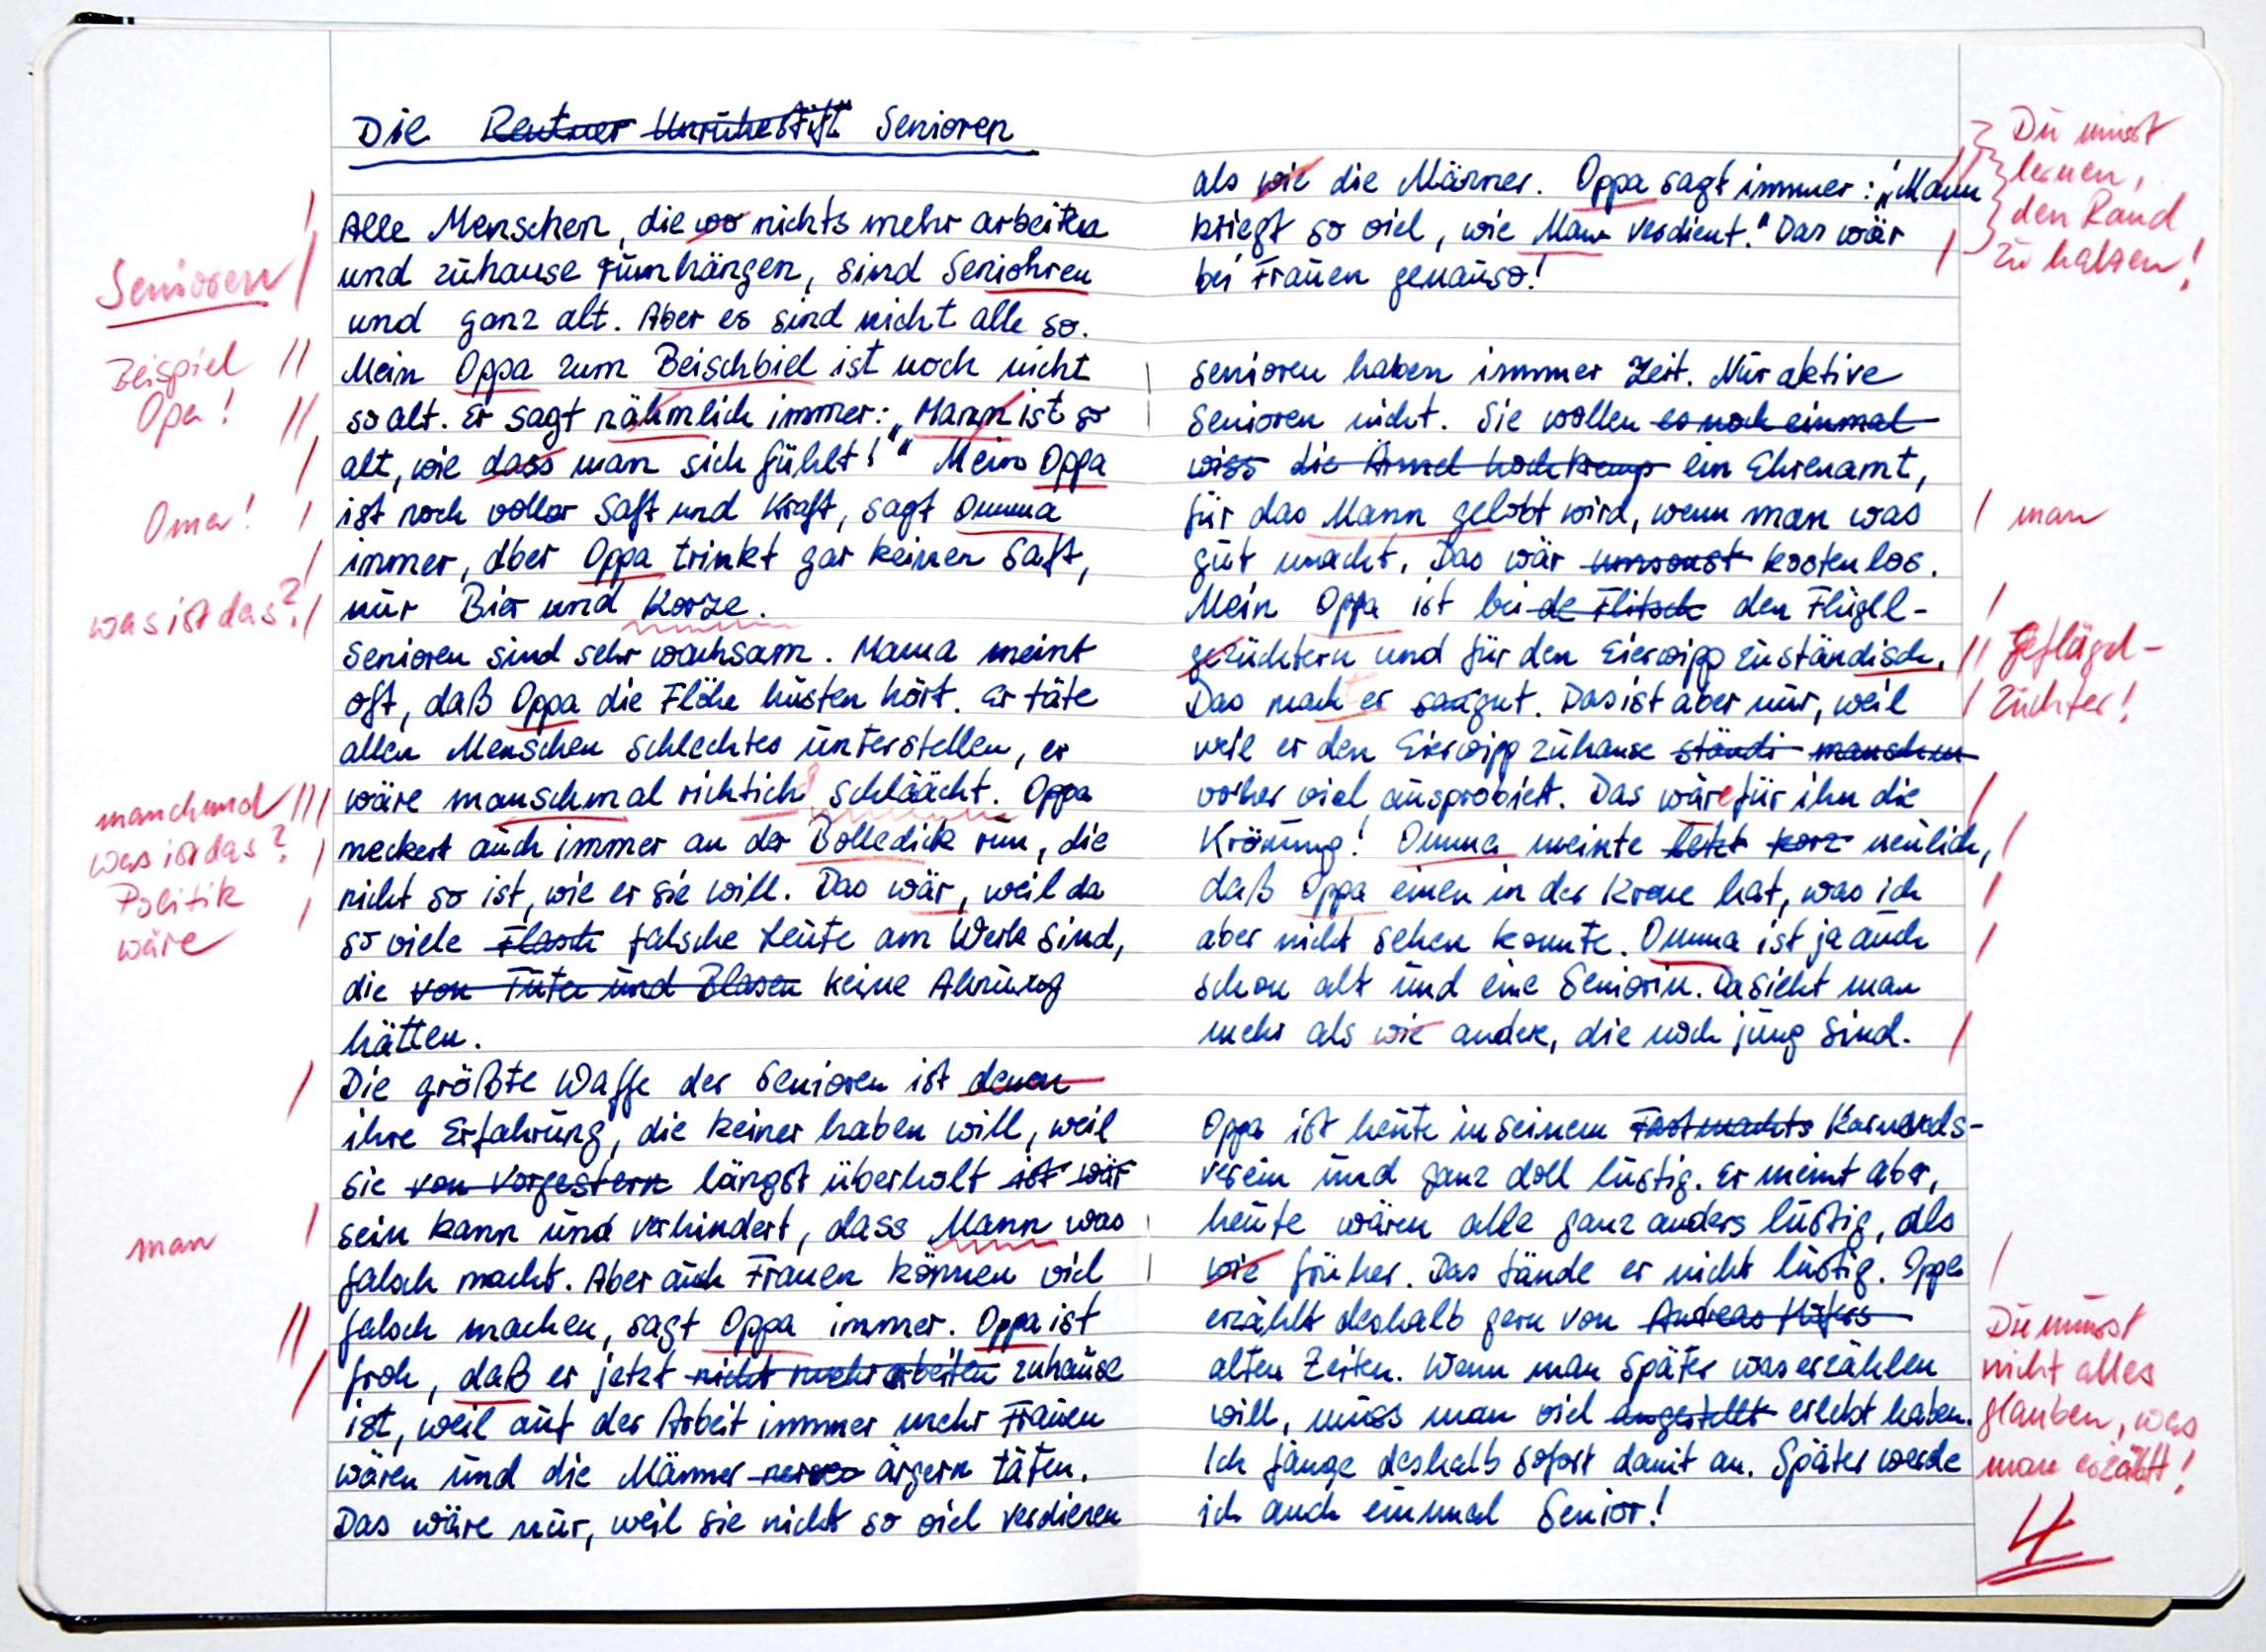 Die Rentner Unruhestift Senioren
Alle Menschen, die wo nichts mehr arbeiten
und zuhause rumhängen, sind Seniohren
und ganz alt. Aber es sind nicht alle so.
Mein Oppa zum Beischbiel ist noch nicht
so alt. Er sagt nähmlich immer: „Mann ist so
alt, wie dass man sich fühlt!" Mein Oppa
ist noch voller Saft und Kraft, sagt Omma
immer, aber Oppa trinkt gar keinen Saft,
nur Bier und Korze.
Senioren sind sehr wachsam. Mama meint
oft, daß Oppa die Flöhe husten hört. Er täte
allen Menschen schlechtes unterstellen, er
wäre manschmal richtich schläächt. Oppa
meckert auch immer an der Bolledick rum, die
nicht so ist, wie er sie will. Das wär, weil da
so viele Flasch falsche Leute am Werk sind,
die von Tuten und Blasen keine Ahnung
hätten.
Die größte Waffe der Senioren ist denen
ihre Erfahrung, die keiner haben will, weil
sie von Vorgestern längst überholt ist wär
sein kann und verhindert, dass Mann was
falsch macht. Aber auch Frauen können viel
falsch machen, sagt Oppa immer. Oppa ist
froh, daß er jetzt nicht mehr arbeiten zuhause
ist, weil auf der Arbeit immer mehr Frauen
wären und die Männer nerven ärgern täten.
Das wäre nur, weil sie nicht so viel verdienen
Senioren
Beispiel
Opa!
Oma!
was ist das?
manchmal
was ist das?
Politik
wäre
man
als wie die Männer. Oppa sagt immer: „Mann
kriegt so viel, wie Man verdient." Das wär
bei Frauen genauso!
Senioren haben immer Zeit. Nur aktive
Senioren nicht. Sie wollen es noch einmal
wiss die Ärmel hochkremp ein Ehrenamt,
für das Mann gelobt wird, wenn man was
gut macht. Das wär umsonst kostenlos.
Mein Oppa ist bei de Flitsch den Flügel-
gezüchtern und für den Eierwipp zuständisch.
Das mach er saugut. Das ist aber nur, weil
weil er den Eierwipp zuhause ständi manschm
vorher viel ausprobiert. Das wäre für ihn die
Krönung! Omma meinte letzt korz neulich,
daß Oppa einen in der Krone hat, was ich
aber nicht sehen konnte. Omma ist ja auch
schon alt und eine Seniorin. Da sieht man
mehr als wie andere, die noch jung sind.
Oppa ist heute in seinem Fastnachts Karnevals-
verein und ganz doll lustig. Er meint aber,
heute wären alle ganz anders lustig, als
wie früher. Das fände er nicht lustig. Oppa
erzählt deshalb gern von Andreas Hofers
alten Zeiten. Wenn man später was erzählen
will, muss man viel angestellt erlebt haben.
Ich fange deshalb sofort damit an. Später werde
ich auch einmal Senior!
Du musst
lernen,
den Rand
zu halten!
man
Geflügel-
züchter!
Du musst
nicht alles
glauben, was
man erzählt!
4